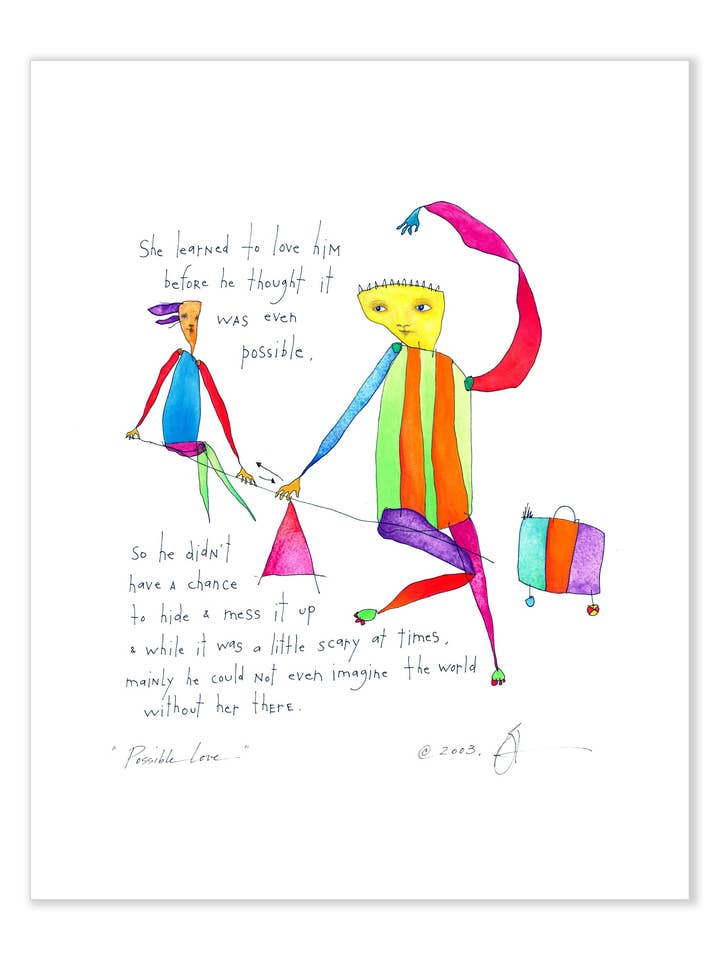 She learned to love him
before he thought it
was even
possible,
so he didn't
have a chance
to hide & mess it up
& while it was a little scary at times,
mainly he could not even imagine the world
without her there.
"Possible Love"
@ 2003.